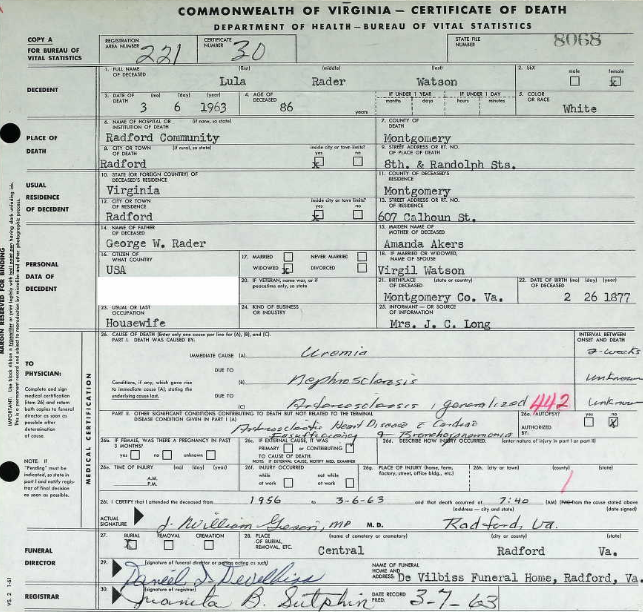 COMMONWEALTH OF VIRGINIA — CERTIFICATE OF DEATH
DEPARTMENT OF HEALTH—BUREAU OF VITAL STATISTICS
COPY A
FOR BUREAU OF VITAL STATISTICS
REGISTRATION AREA NUMBER 221 CERTIFICATE NUMBER 30 STATE FILE NUMBER 8068
DECEDENT
1. FULL NAME OF DECEASED (first) (middle) (last) 2. SEX male female
Lula Rader Watson x
3. DATE OF DEATH (mo) (day) (year) 4. AGE OF DECEASED IF UNDER 1 YEAR months days IF UNDER 1 DAY hours minutes 5. COLOR OR RACE
3 6 1963 86 years White
PLACE OF DEATH
6. NAME OF HOSPITAL OR INSTITUTION OF DEATH (if none, so state) 7. COUNTY OF DEATH
Radford Community Montgomery
8. CITY OR TOWN OF DEATH (if rural, so state) inside city or town limits? yes no 9. STREET ADDRESS OR RT. NO. OF PLACE OF DEATH
Radford x 8th. & Randolph Sts.
USUAL RESIDENCE OF DECEDENT
10. STATE (OR FOREIGN COUNTRY) OF DECEASED'S RESIDENCE 11. COUNTY OF DECEASED'S RESIDENCE
Virginia Montgomery
12. CITY OR TOWN OF RESIDENCE inside city or town limits? yes no 13. STREET ADDRESS OR RT. NO. OF RESIDENCE
Radford x 607 Calhoun St.
PERSONAL DATA OF DECEDENT
14. NAME OF FATHER OF DECEASED 15. MAIDEN NAME OF MOTHER OF DECEASED
George W. Rader Amanda Akers
16. CITIZEN OF WHAT COUNTRY 17. MARRIED NEVER MARRIED 18. IF MARRIED OR WIDOWED, NAME OF SPOUSE
USA WIDOWED x DIVORCED Virgil Watson
20. IF VETERAN, name war, or if peacetime only, so state 21. BIRTHPLACE (state or country) 22. DATE OF BIRTH (mo) (day) (year)
Montgomery Co. Va. 2 26 1877
23. USUAL OR LAST OCCUPATION 24. KIND OF BUSINESS OR INDUSTRY 25. INFORMANT — OR SOURCE OF INFORMATION
Housewife Mrs. J. C. Long
TO PHYSICIAN:
Complete and sign medical certification (item 26) and return both copies to funeral director as soon as possible after determination of cause.
NOTE: If "Pending" must be indicated, so state in part I and notify registrar of final decision as soon as possible.
MEDICAL CERTIFICATION
26. CAUSE OF DEATH (Enter only one cause per line for (A), (B), and (C). INTERVAL BETWEEN ONSET AND DEATH
PART I. DEATH WAS CAUSED BY:
IMMEDIATE CAUSE (A) Uremia 2 weeks
DUE TO
Conditions, if any, which gave rise to immediate cause (A), stating the underlying cause last. (B) Nephrosclerosis Unknown
DUE TO
(C) Arteriosclerosis, generalized 442 Unknown
PART II. OTHER SIGNIFICANT CONDITIONS CONTRIBUTING TO DEATH BUT NOT RELATED TO THE TERMINAL DISEASE CONDITION GIVEN IN PART I (A) 26a. AUTOPSY? yes no x
Arteriosclerotic Heart Disease & Cardiac AUTHORIZED BY:
& Bronchopneumonia
26b. IF FEMALE, WAS THERE A PREGNANCY IN PAST 3 MONTHS? yes no unknown 26c. IF EXTERNAL CAUSE, IT WAS PRIMARY or CONTRIBUTING TO CAUSE OF DEATH 26d. DESCRIBE HOW INJURY OCCURRED (enter nature of injury in part I or part II)
NOTE: IF EXTERNAL CAUSE, NOTIFY MED. EXAMINER
26e. TIME OF INJURY (mo) (day) (year) A.M. P.M. 26f. INJURY OCCURRED while at work not while at work 26g. PLACE OF INJURY (home, farm, factory, street, office bldg., etc.) 26h. (city or town) (county) (state)
26i. I CERTIFY that I attended the deceased from 1956 to 3-6-63 and that death occurred at 7:40 (AM) from the cause stated above
(address — city and state) (date signed)
ACTUAL SIGNATURE J. William MD M. D. Radford, Va.
FUNERAL DIRECTOR
27. BURIAL x REMOVAL CREMATION 28. PLACE OF BURIAL, REMOVAL, ETC. (name of cemetery or crematory) (city or county) (state)
Central Radford Va.
29. (signature of funeral director or person acting as such) NAME OF FUNERAL HOME AND ADDRESS:
Daniel J. DeVilbiss De Vilbiss Funeral Home, Radford, Va.
REGISTRAR
30. (signature of registrar) DATE RECORD FILED:
Juanita B. Sutphin 3-7-63
MARGIN RESERVED FOR BINDING